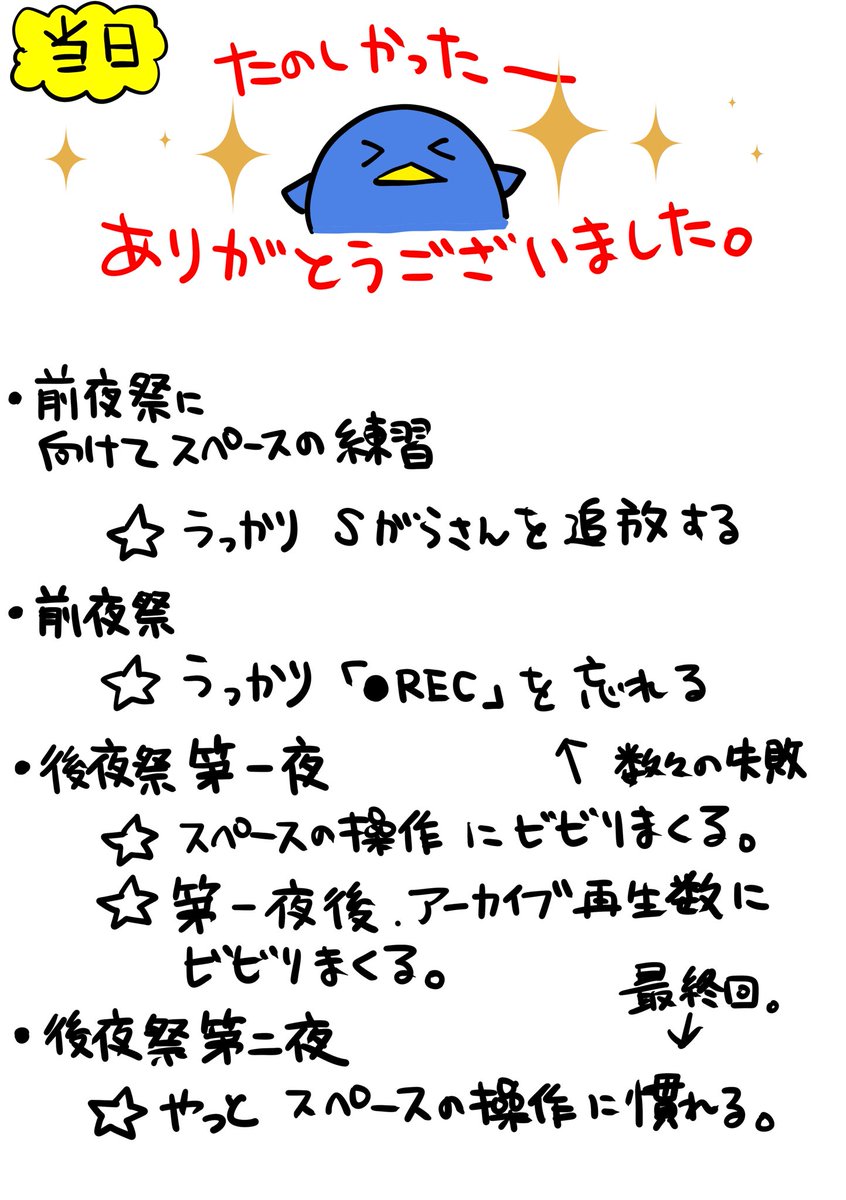 当日
たのしかったー
ありがとうございました。
・前夜祭に
向けてスペースの練習
☆うっかりSがらさんを追放する
・前夜祭
☆うっかり「●REC」を忘れる
↑数々の失敗
・後夜祭第一夜
☆スペースの操作にビビりまくる。
☆第一夜後、アーカイブ再生数に
ビビりまくる。
・後夜祭第二夜
最終回。
↓
☆やっとスペースの操作に慣れる。